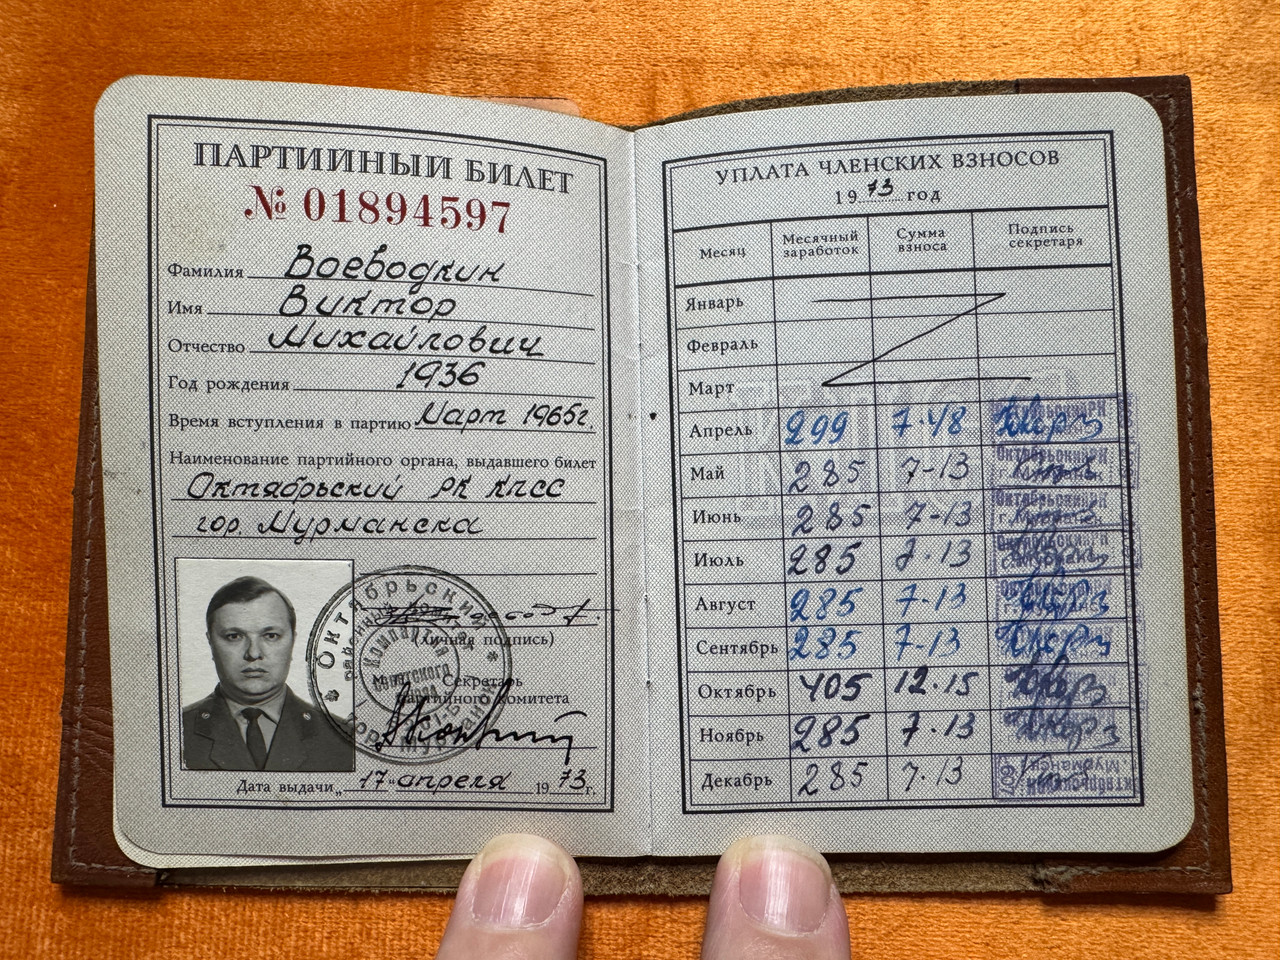 ПАРТИЙНЫЙ БИЛЕТ
№ 01894597
Фамилия Воеводкин
Имя Виктор
Отчество Михайлович
Год рождения 1936
Время вступления в партию Март 1965г.
Наименование партийного органа, выдавшего билет
Октябрьский РК КПСС
гор. Мурманска
(личная подпись)
Секретарь
партийного комитета
Дата выдачи „17" апреля 1973г.
УПЛАТА ЧЛЕНСКИХ ВЗНОСОВ
1973 год
Месяц Месячный заработок Сумма взноса Подпись секретаря
Январь
Февраль
Март
Апрель 299 7-48
Май 285 7-13
Июнь 285 7-13
Июль 285 7-13
Август 285 7-13
Сентябрь 285 7-13
Октябрь 405 12-15
Ноябрь 285 7-13
Декабрь 285 7-13